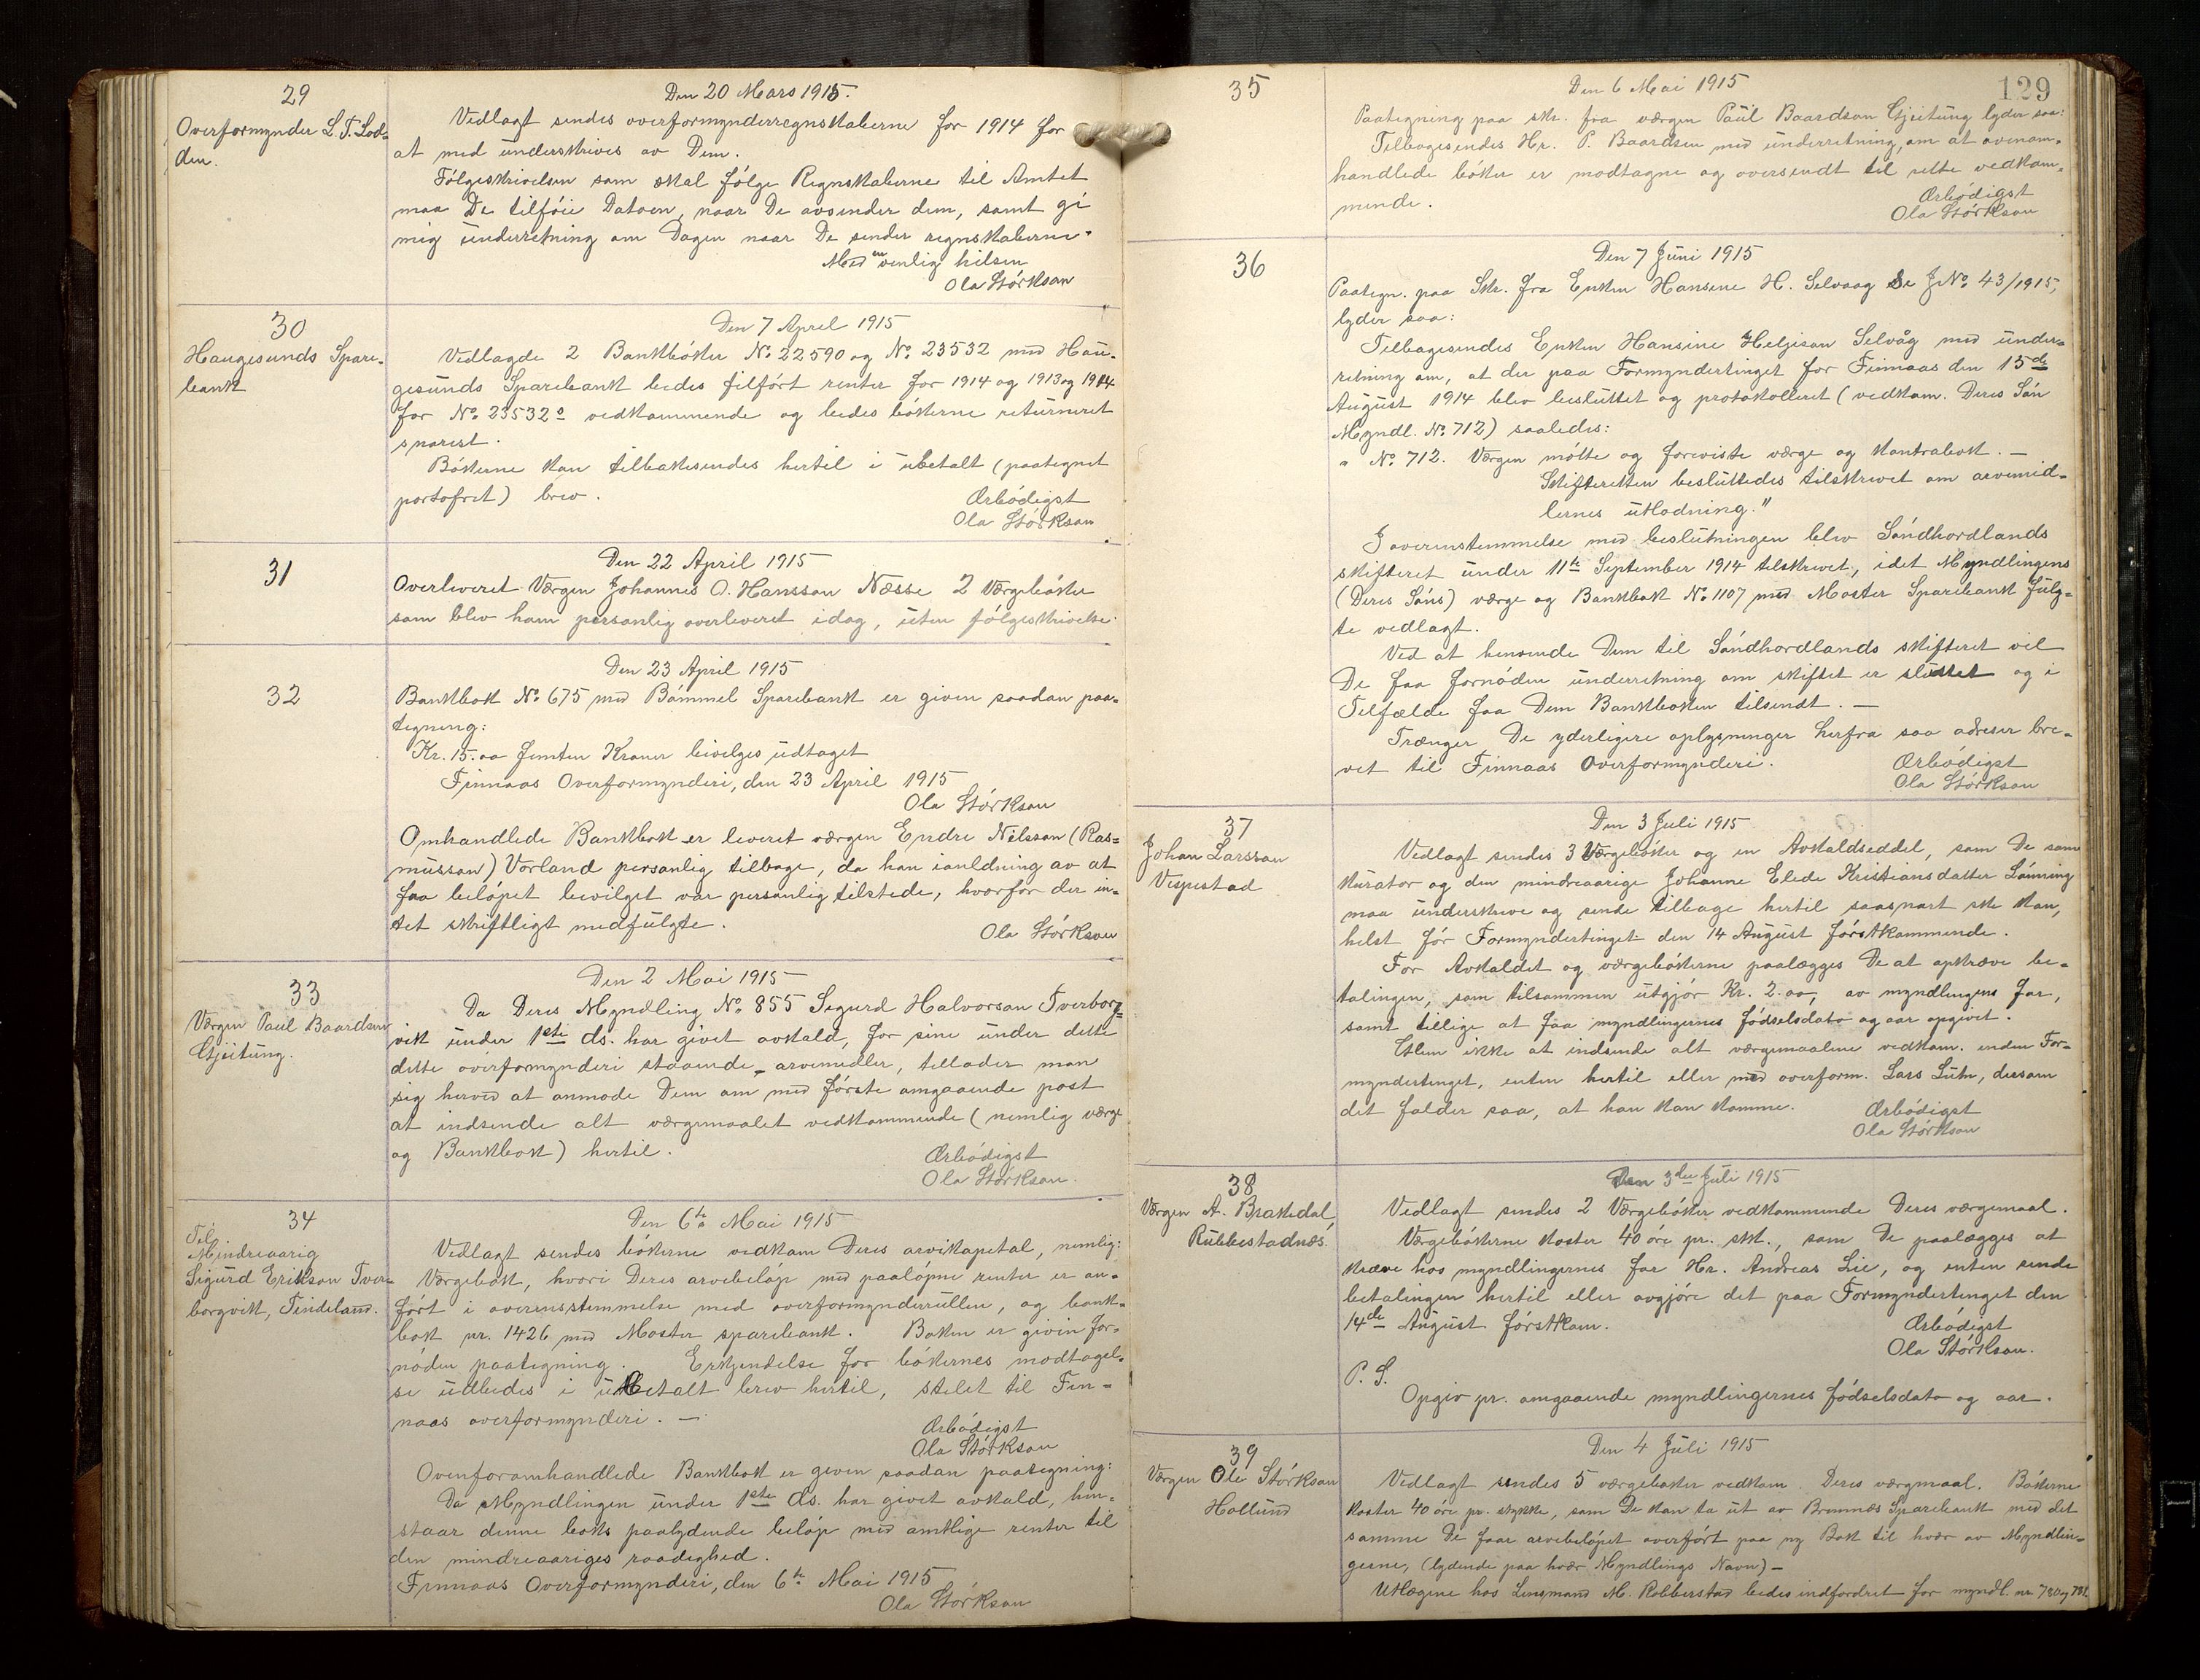 29
Overformynder L. T. Lod-
den.
Den 20 Mars 1915.
Vedlagt sendes overformynderregnskaberne for 1914 for
at med underskrives av Dem.
Følgeskrivelsen som skal følge Regnskaberne til Amtet
maa De tilføie Datoen, naar De avsender dem, samt gi
mig underretning om Dagen naar De sender regnskaberne.
Med en venlig hilsen
Ola Størkson
30
Haugesunds Spare-
bank
Den 7 April 1915
Vedlagde 2 Bankbøker No. 22590 og No. 23532 med Hau-
gesunds Sparebank bedes tilført renter for 1914 og 1913 og 1914
for No. 23532s vedkommende og bedes bøkerne returneret
snarest.
Bøkerne kan tilbakesendes hertil i ubetalt (paategnet
portofrit) brev.
Ærbødigst
Ola Størkson
31
Den 22 April 1915
Overleveret Værgen Johannes O. Hansson Næsse 2 Værgebøker
som blev ham personlig overleveret idag, uten følgeskrivelse.
32
Den 23 April 1915
Bankbok No. 675 med Bømmel Sparebank er given saadan paa-
tegning:
Kr. 15.00 femten Kroner bevilges udtaget
Finnaas Overformynderi, den 23 April 1915
Ola Størkson
Omhandlede Bankbok er leveret værgen Endre Nilsson (Ras-
musson) Vorland personlig tilbage, da han ianldning av at
faa beløpet bevilget var personlig tilstede, hvorfor der in-
tet skriftligt medfulgte.
Ola Størkson
33
Værgen Paul Baardsen
Gjeitung.
Den 2 Mai 1915
Da Deres Myndling No. 855 Segurd Halvorson Tverborg-
vik under 1ste ds. har givet avkald, for sine under dette
dette overformynderi staaende arvemidler, tellader man
sig herved at anmode Dem om med første omgaaende post
at indsende alt værgemaalet vedkommende (nemlig værge
og Bankbok) hertil.
Ærbødigst
Ola Størkson.
34
Til
Mindreaarig
Sigurd Erikson Tver-
borgvik, Tindeland.
Den 6te Mai 1915
Vedlagt sendes bøkerne vedkom Deres arvekapetal, nemlig:
Værgebok, hvori Deres arvebeløp med paaløpne renter er an-
ført i overensstemmelse med overformynderrullen, og bank-
bok nr. 1426 med Moster sparebank. Boken er givin for-
nøden paategning. Erkjendelse for bøkernes modtagel-
se udbedes i ubetalt brev hertil, stilet til Fin-
naas overformynderi. —
Ærbødigst
Ola Størkson
Ovenforomhandlede Bankbok er given saadan paategning:
Da Myndlingen under 1ste ds. har givet avkald, hen-
staar denne boks paalydende beløp med amtlige renter til
den mindreaariges raadighed.
Finnaas Overformynderi, den 6te Mai 1915
Ola Størkson
129
35
Den 6 Mai 1915
Paategning paa skr. fra værgen Paul Baardson Gjeitung lyder saa:
Tilbagesendes Hr. P. Baardsen med underretning, om at ovenom-
handlede bøker er modtagne og oversendt til rette vedkom-
mende.
Ærbødigst
Ola Størkson
36
Den 7 Juni 1915
Paategn. paa Skr. fra Enken Hansine H. Selvaag Se JNo. 43/1915,
lyder saa:
Tilbagesendes Enken Hansine Helgison Selvåg med under-
retning om, at der paa Formyndertinget for Finnaas den 15de
August 1914 blev besluttet og protokolleret (vedkom. Deres Søn
Myndl. No. 712) saaledes:
" No. 712. Værgen møtte og foreviste værge og Kontrabok. —
Skifteretten besluttedes tilskrevet om arvemid-
lernes utlodning."
I overenstemmelse med beslutningen blev Søndhordlands
skifteret under 11te September 1914 tilskrevet, idet Myndlingens
(Deres Søns) værge og Bankbok No. 1107 med Moster Sparebank fulg-
te vedlagt.
Ved at henvende Dem til Søndhordlands skifteret vil
De faa fornøden underretning om skiftet er sluttet og i
Tilfælde faa Dem Bankboken tilsendt. —
Trænger De yderligere oplysninger herfra saa adreser bre-
vet til Finnaas Overformynderi.
Ærbødigst
Ola Størkson
37
Johan Larsson
Vespestad
Den 3 Juli 1915
Vedlagt sendes 3 Værgebøker og en Avkaldseddel, som De som
kurator og den mindreaarige Johanne Elede Kristiansdatter Lønning
maa underskrive og sende tilbage hertil saasnart ske kan,
helst før Formyndertinget den 14 August førstkommende.
For Avkaldet og værgebøkerne paalægges De at opkræve be-
talingen, som tilsammen utgjør Kr. 2.00, av myndlingens far,
samt tillige at faa myndlingernes fødselsdato og aar opgivet.
Glem ikke at indsende alt værgemaalene vedkom. inden For-
myndertinget, enten hertil eller med overform. Lars Lutn, dersom
det falder saa, at han kan komme.
Ærbødigst
Ola Størkson
38
Værgen A. Brakedal
Rubbestadnæs.
Den 3die Juli 1915
Vedlagt sendes 2 Værgebøker vedkommende Deres værgemaal.
Værgebøkerne koster 40 øre pr. stk., som De paalægges at
kræve hos myndlingernes far Hr. Andreas Lie, og enten sende
betalingen hertil eller avgjøre det paa Formyndertinget den
14de August førstkom.
Ærbødigst
Ola Størkson.
P. S.
Opgiv pr. omgaaende myndlingernes fødselsdato og aar.
39
Værgen Ole Størkson
Hollund
Den 4 Juli 1915
Vedlagt sendes 5 værgebøker vedkom Deres værgmaal. Bøkerne
koster 40 øre pr. stykke, som De kan ta ut av Bremnæs Sparebank med det
samme De faar arvebeløpet overført paa ny Bok til hver av Myndlin-
gerne, (lydende paa hver Myndlings Navn) —
Utlægene hos Lensmand M. Robberstad bedes indfordret for myndl. nr 780 og 781